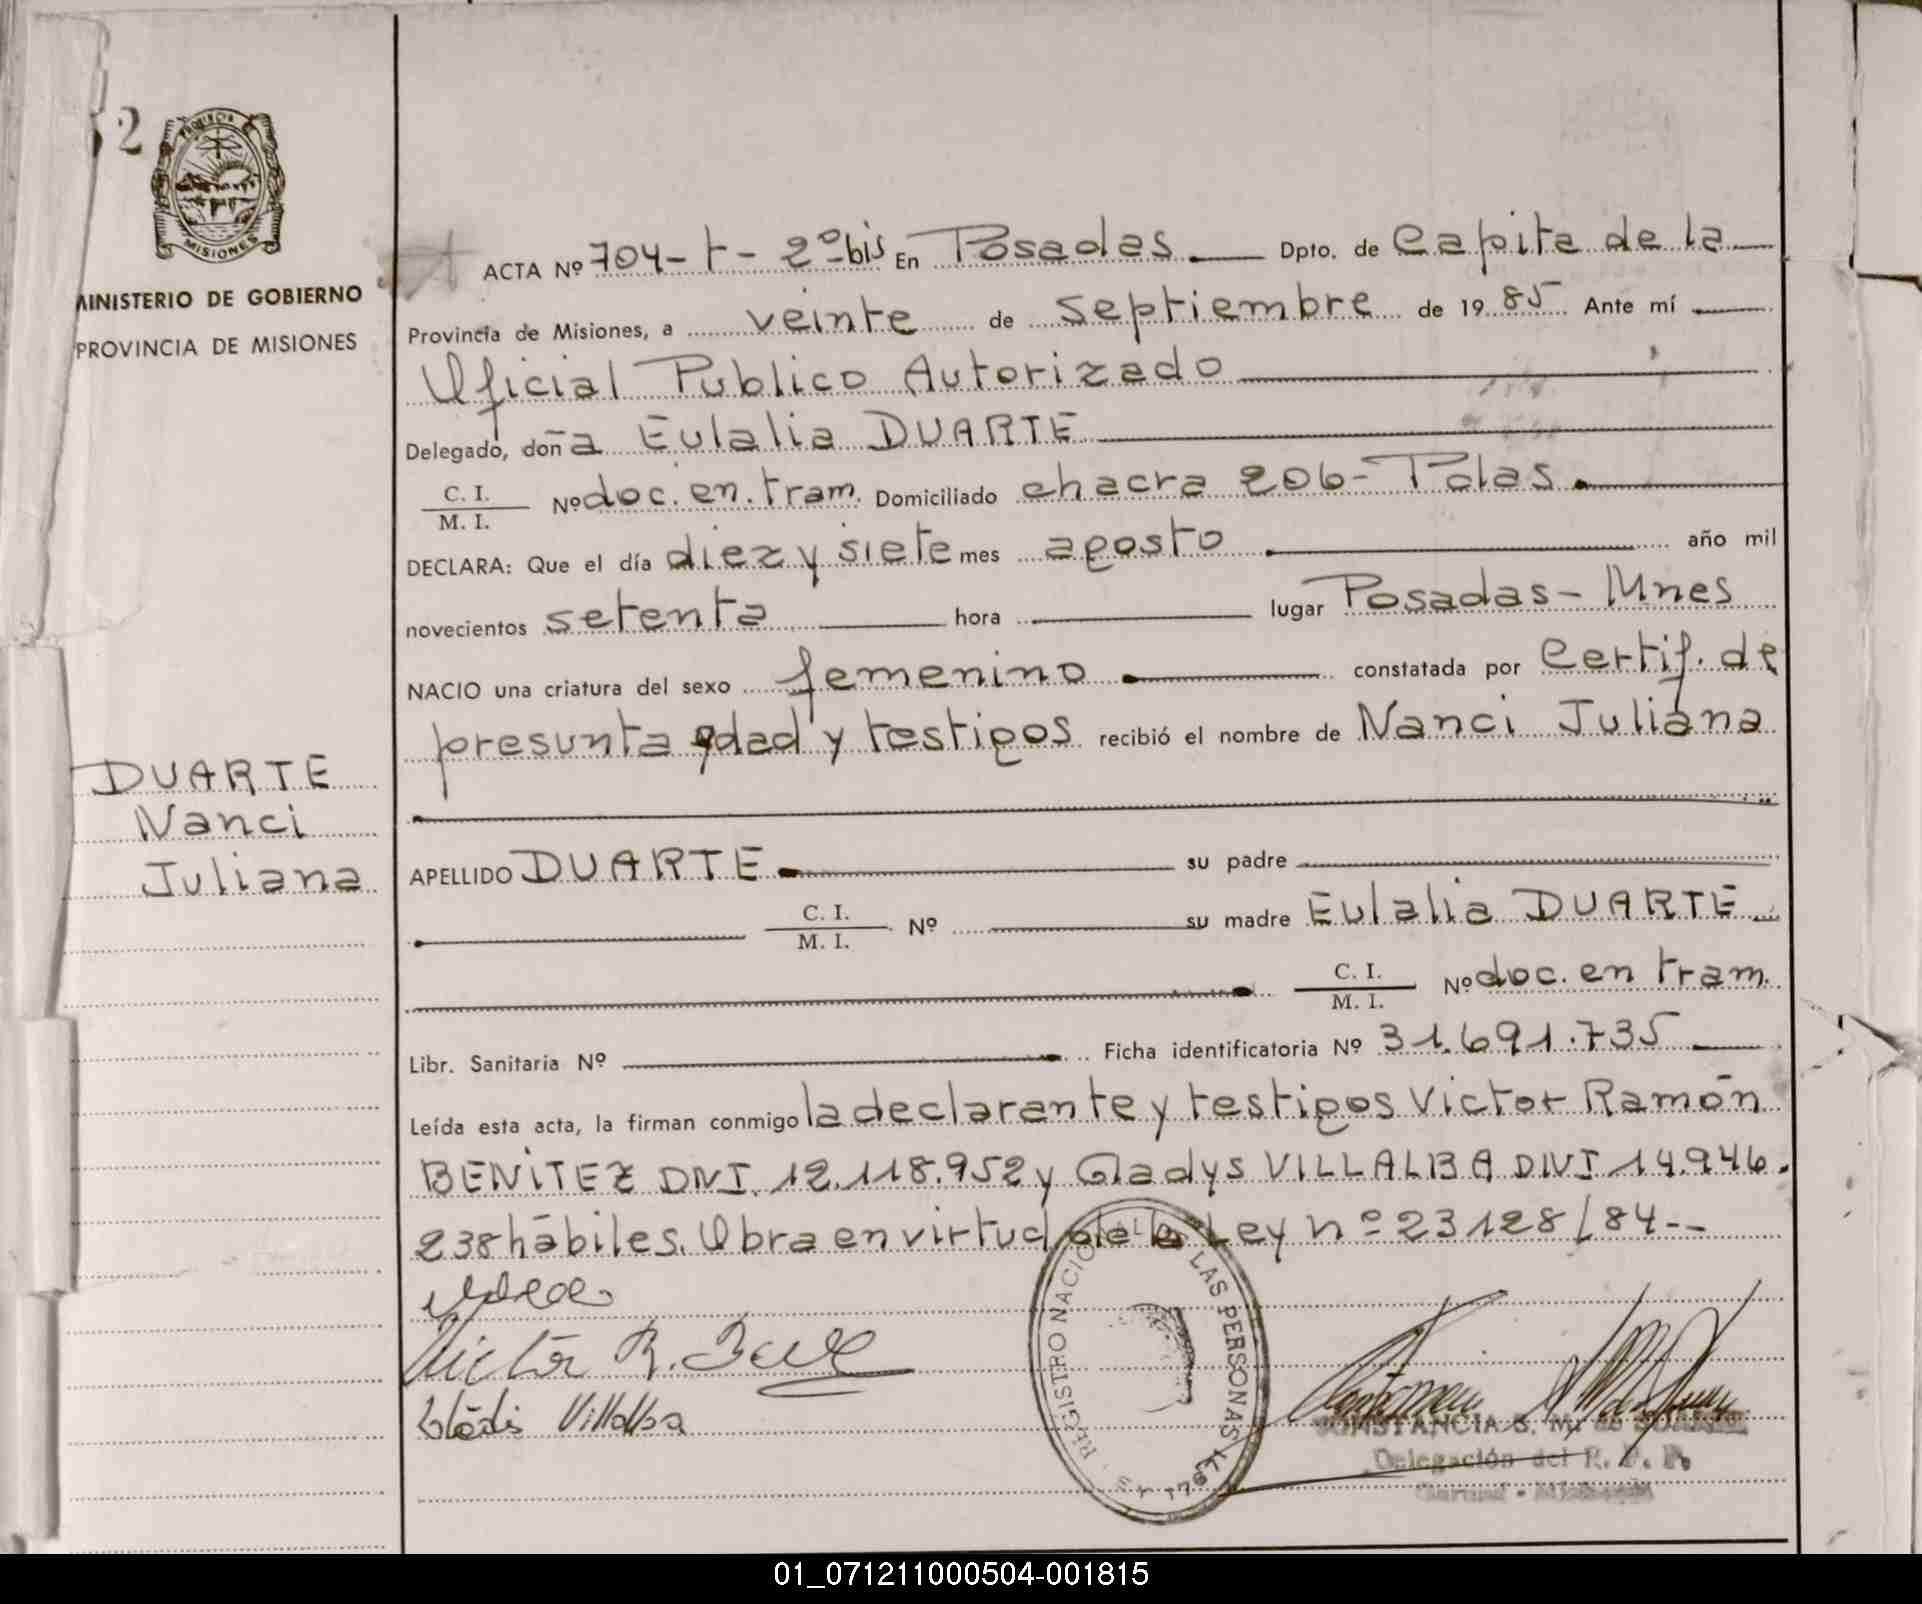 2
PROVINCIA DE
MISIONES
MINISTERIO DE GOBIERNO
PROVINCIA DE MISIONES
DUARTE
Nanci
Juliana
ACTA Nº 704-t-2º bis En Posadas Dpto. de Capita de la
Provincia de Misiones, a veinte de septiembre de 1985 Ante mí
Oficial Publico Autorizado
Delegado, doña Eulalia DUARTE
C. I.
M. I. Nº doc. en. tram. Domiciliado chacra 206- Pdas
DECLARA: Que el día diez y siete mes agosto año mil
novecientos setenta hora lugar Posadas - Mnes
NACIO una criatura del sexo femenino constatada por Certif. de
presunta edad y testigos recibió el nombre de Nanci Juliana
APELLIDO DUARTE su padre
C. I.
M. I. Nº su madre Eulalia DUARTE
C. I.
M. I. Nº doc. en tram.
Libr. Sanitaria Nº Ficha identificatoria Nº 31.691.735
Leída esta acta, la firman conmigo la declarante y testigos Victor Ramón
BENITEZ DNI. 12.118.952 y Gladys VILLALBA DNI 14.946.
238 hábiles. Obra en virtud de la Ley nº 23128/84--
Victor R.
Gladis Villalba
REGISTRO NACIONAL DE LAS PERSONAS
CONSTANCIA S. M. de
Delegación del R. P. P.
01_071211000504-001815